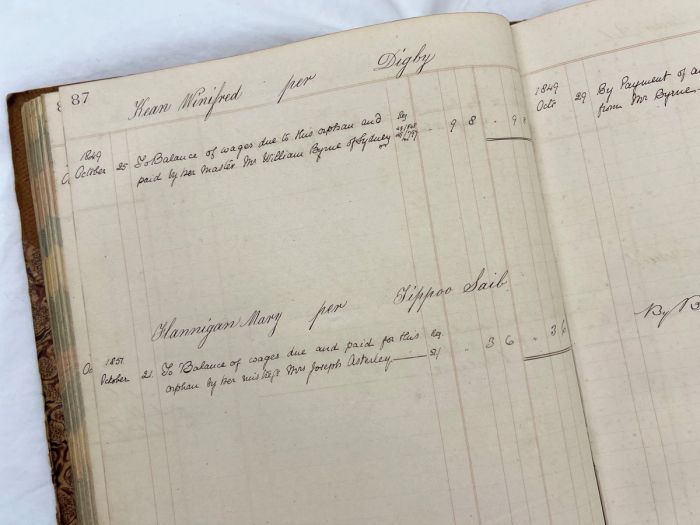 87
Kean Winifred per Digby
1849
October 25 To Balance of wages due to this orphan and
paid by her Master Mr William Byrne of Sydney
9 8 9
1849
Octr 29 By Payment of a
from Mr Byrne
Flannigan Mary per Tippoo Saib
1851
October 21 To Balance of wages due and paid for this
orphan by her Mistress Mrs Joseph Asterley
3 6 3 6
By B